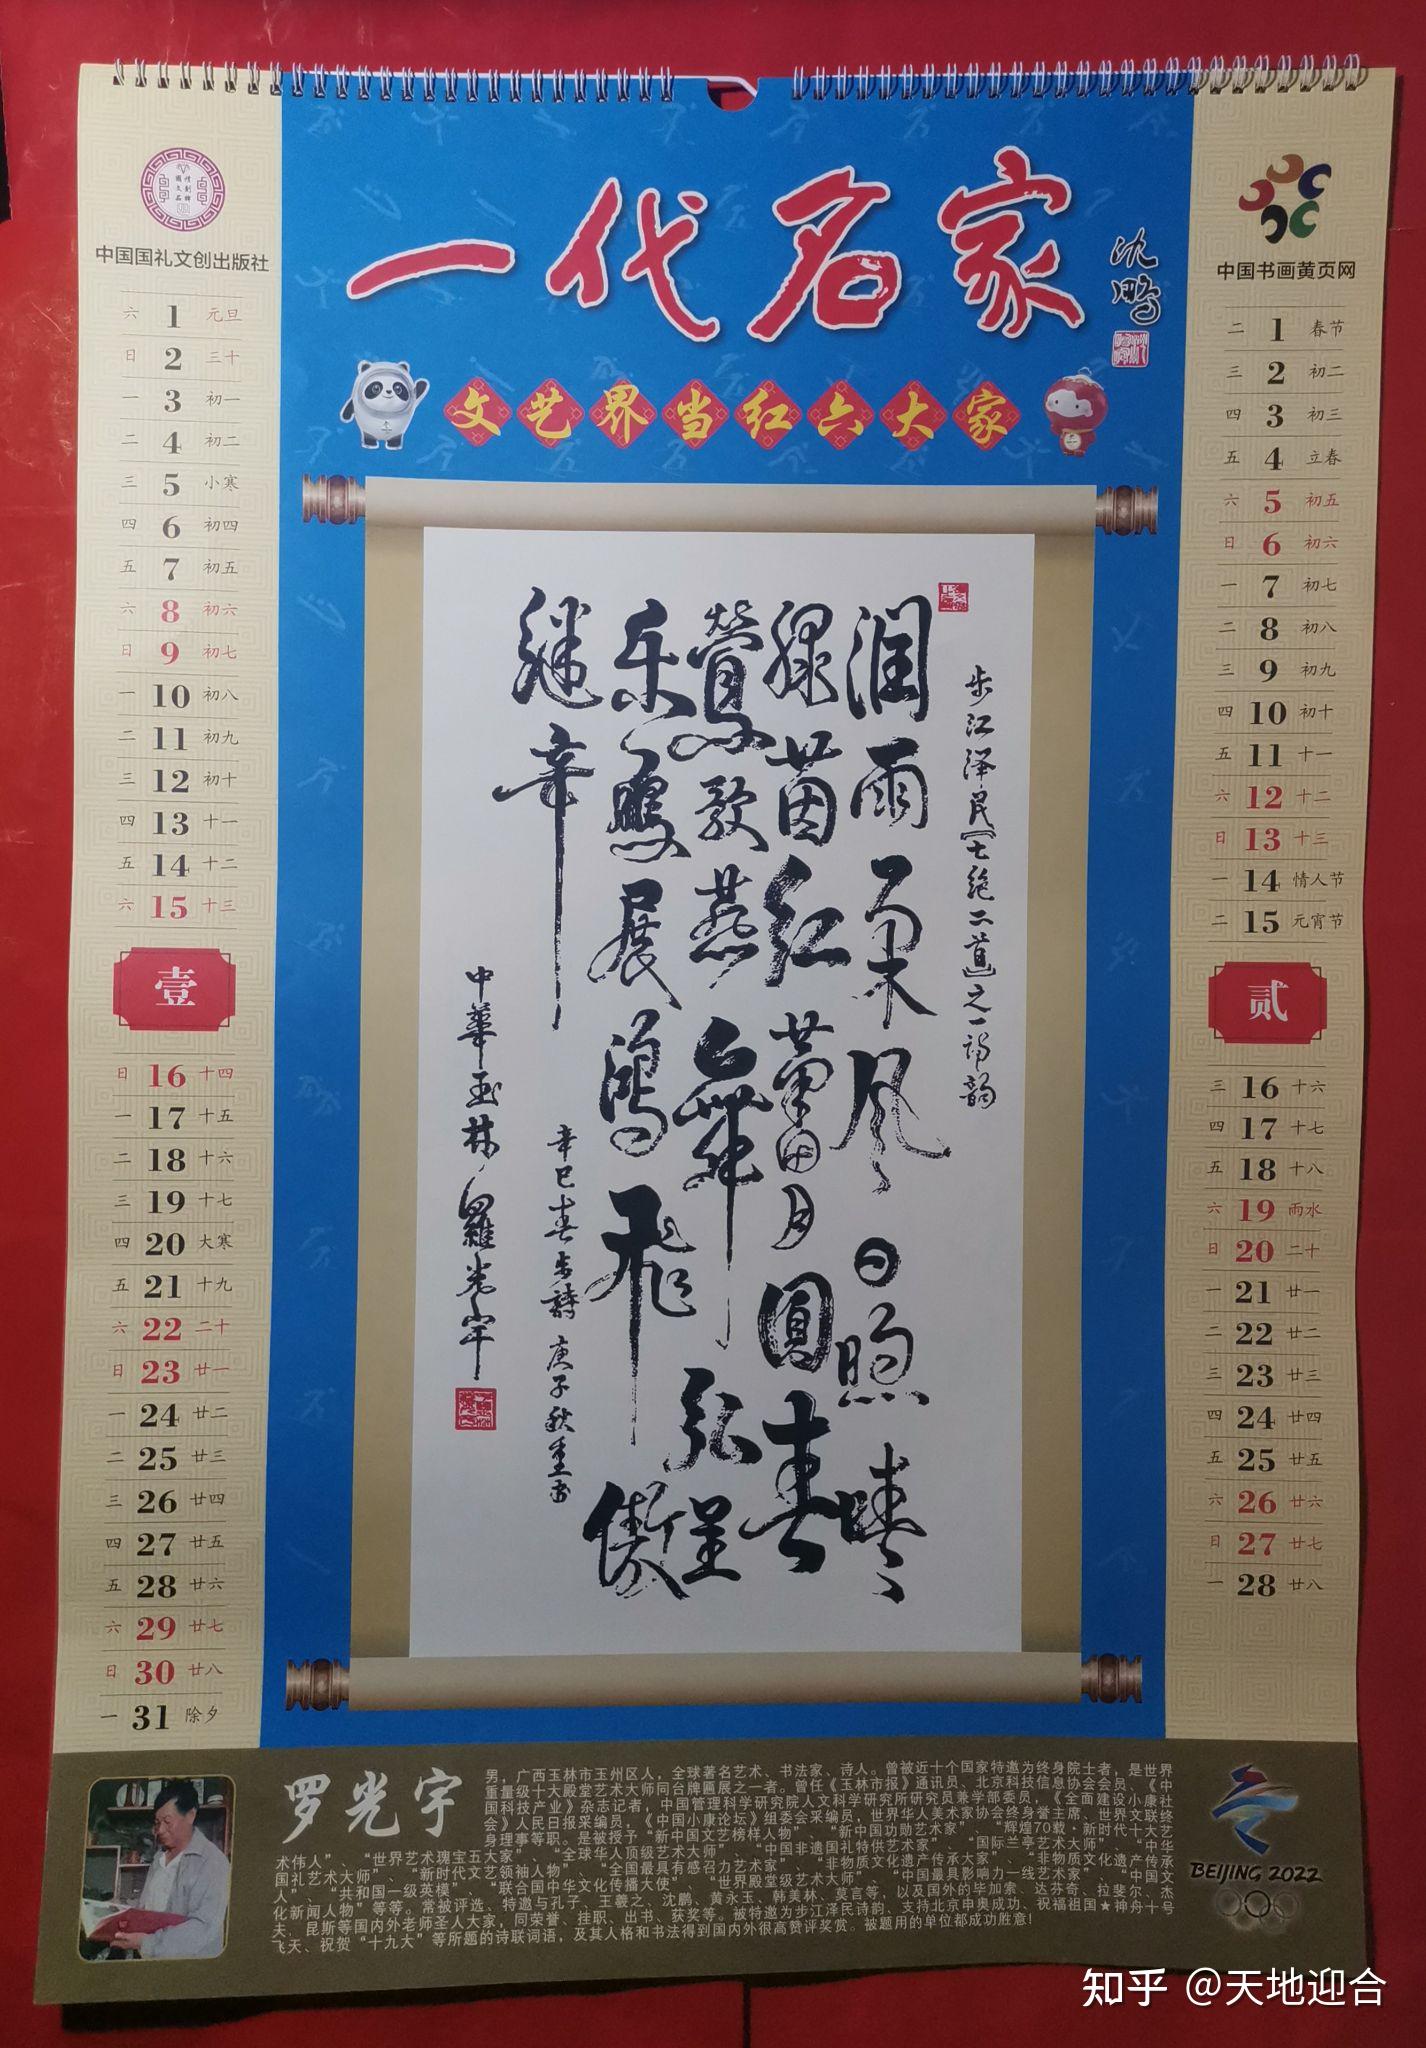 中国国礼文创出版社
中国书画黄页网
一代名家
沈鹏
文艺界当红六大家
六 1 元旦
日 2 三十
一 3 初一
二 4 初二
三 5 小寒
四 6 初四
五 7 初五
六 8 初六
日 9 初七
一 10 初八
二 11 初九
三 12 初十
四 13 十一
五 14 十二
六 15 十三
壹
日 16 十四
一 17 十五
二 18 十六
三 19 十七
四 20 大寒
五 21 十九
六 22 二十
日 23 廿一
一 24 廿二
二 25 廿三
三 26 廿四
四 27 廿五
五 28 廿六
六 29 廿七
日 30 廿八
一 31 除夕
步江泽民《七绝二首》之一诗韵
润雨柔风日煦晴
绿茵红蕾月圆春
莺歌燕舞弘呈
乐鹰展鸿飞傲
继辛
辛巳春 诗 庚子秋重书
中華玉林 羅光宇
二 1 春节
三 2 初二
四 3 初三
五 4 立春
六 5 初五
日 6 初六
一 7 初七
二 8 初八
三 9 初九
四 10 初十
五 11 十一
六 12 十二
日 13 十三
一 14 情人节
二 15 元宵节
贰
三 16 十六
四 17 十七
五 18 十八
六 19 雨水
日 20 二十
一 21 廿一
二 22 廿二
三 23 廿三
四 24 廿四
五 25 廿五
六 26 廿六
日 27 廿七
一 28 廿八
罗光宇
男，广西玉林市玉州区人，全球著名艺术、书法家、诗人。曾被近十个国家特邀为终身院士者，是世界
重量级十大殿堂艺术大师同台牌匾展之一者。曾任《玉林市报》通讯员、北京科技信息协会会员、《中
国科技产业》杂志记者，中国管理科学研究院人文科学研究所研究员兼学部委员，《全面建设小康社
会》人民日报采编员，《中国小康论坛》组委会采编员，世界华人美术家协会终身誉主席、世界文联终
身理事等职。是被授予“新中国文艺榜样人物”、“新中国功勋艺术家”、“辉煌70载·新时代十大艺
术伟人”、“世界艺术瑰宝五大家”、“全球华人顶级艺术大师”、“中国非遗国礼特供艺术家”、“国际兰亭艺术大师”、“中华
国礼艺术大师”、“新时代文艺领袖人物”、“全国最具有感召力艺术家”、“非物质文化遗产传承大家”、“非物质文化遗产传承
人”、“共和国一级英模”、“联合国中华文化传播大使”、“世界殿堂级艺术大师”、“中国最具影响力一线艺术家”、“中国文
化新闻人物”等等。常被评选、特邀与孔子、王羲之、沈鹏、黄永玉、韩美林、莫言等，以及国外的毕加索、达芬奇、拉斐尔、杰
夫、昆斯等国内外老师圣人大家，同荣誉、挂职、出书、获奖等。被特邀为步江泽民诗韵、支持北京申奥成功、祝福祖国★神舟十号
飞天、祝贺“十九大”等所题的诗联词语，及其人格和书法得到国内外很高赞评奖赏。被题用的单位都成功胜意！
BEIJING 2022
知乎 @天地迎合